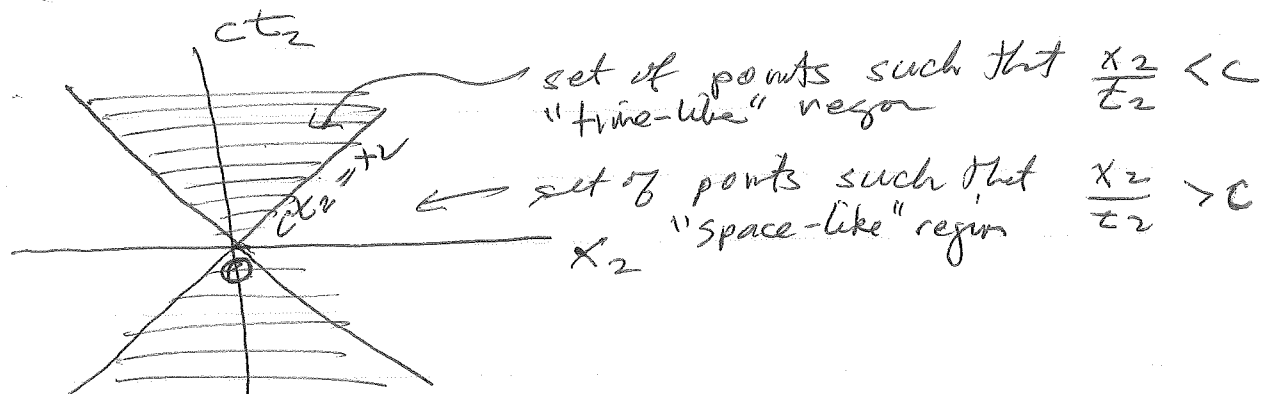 ct₂
set of points such that x₂/t₂ < c
"time-like" region
set of points such that x₂/t₂ > c
"space-like" region
x₂